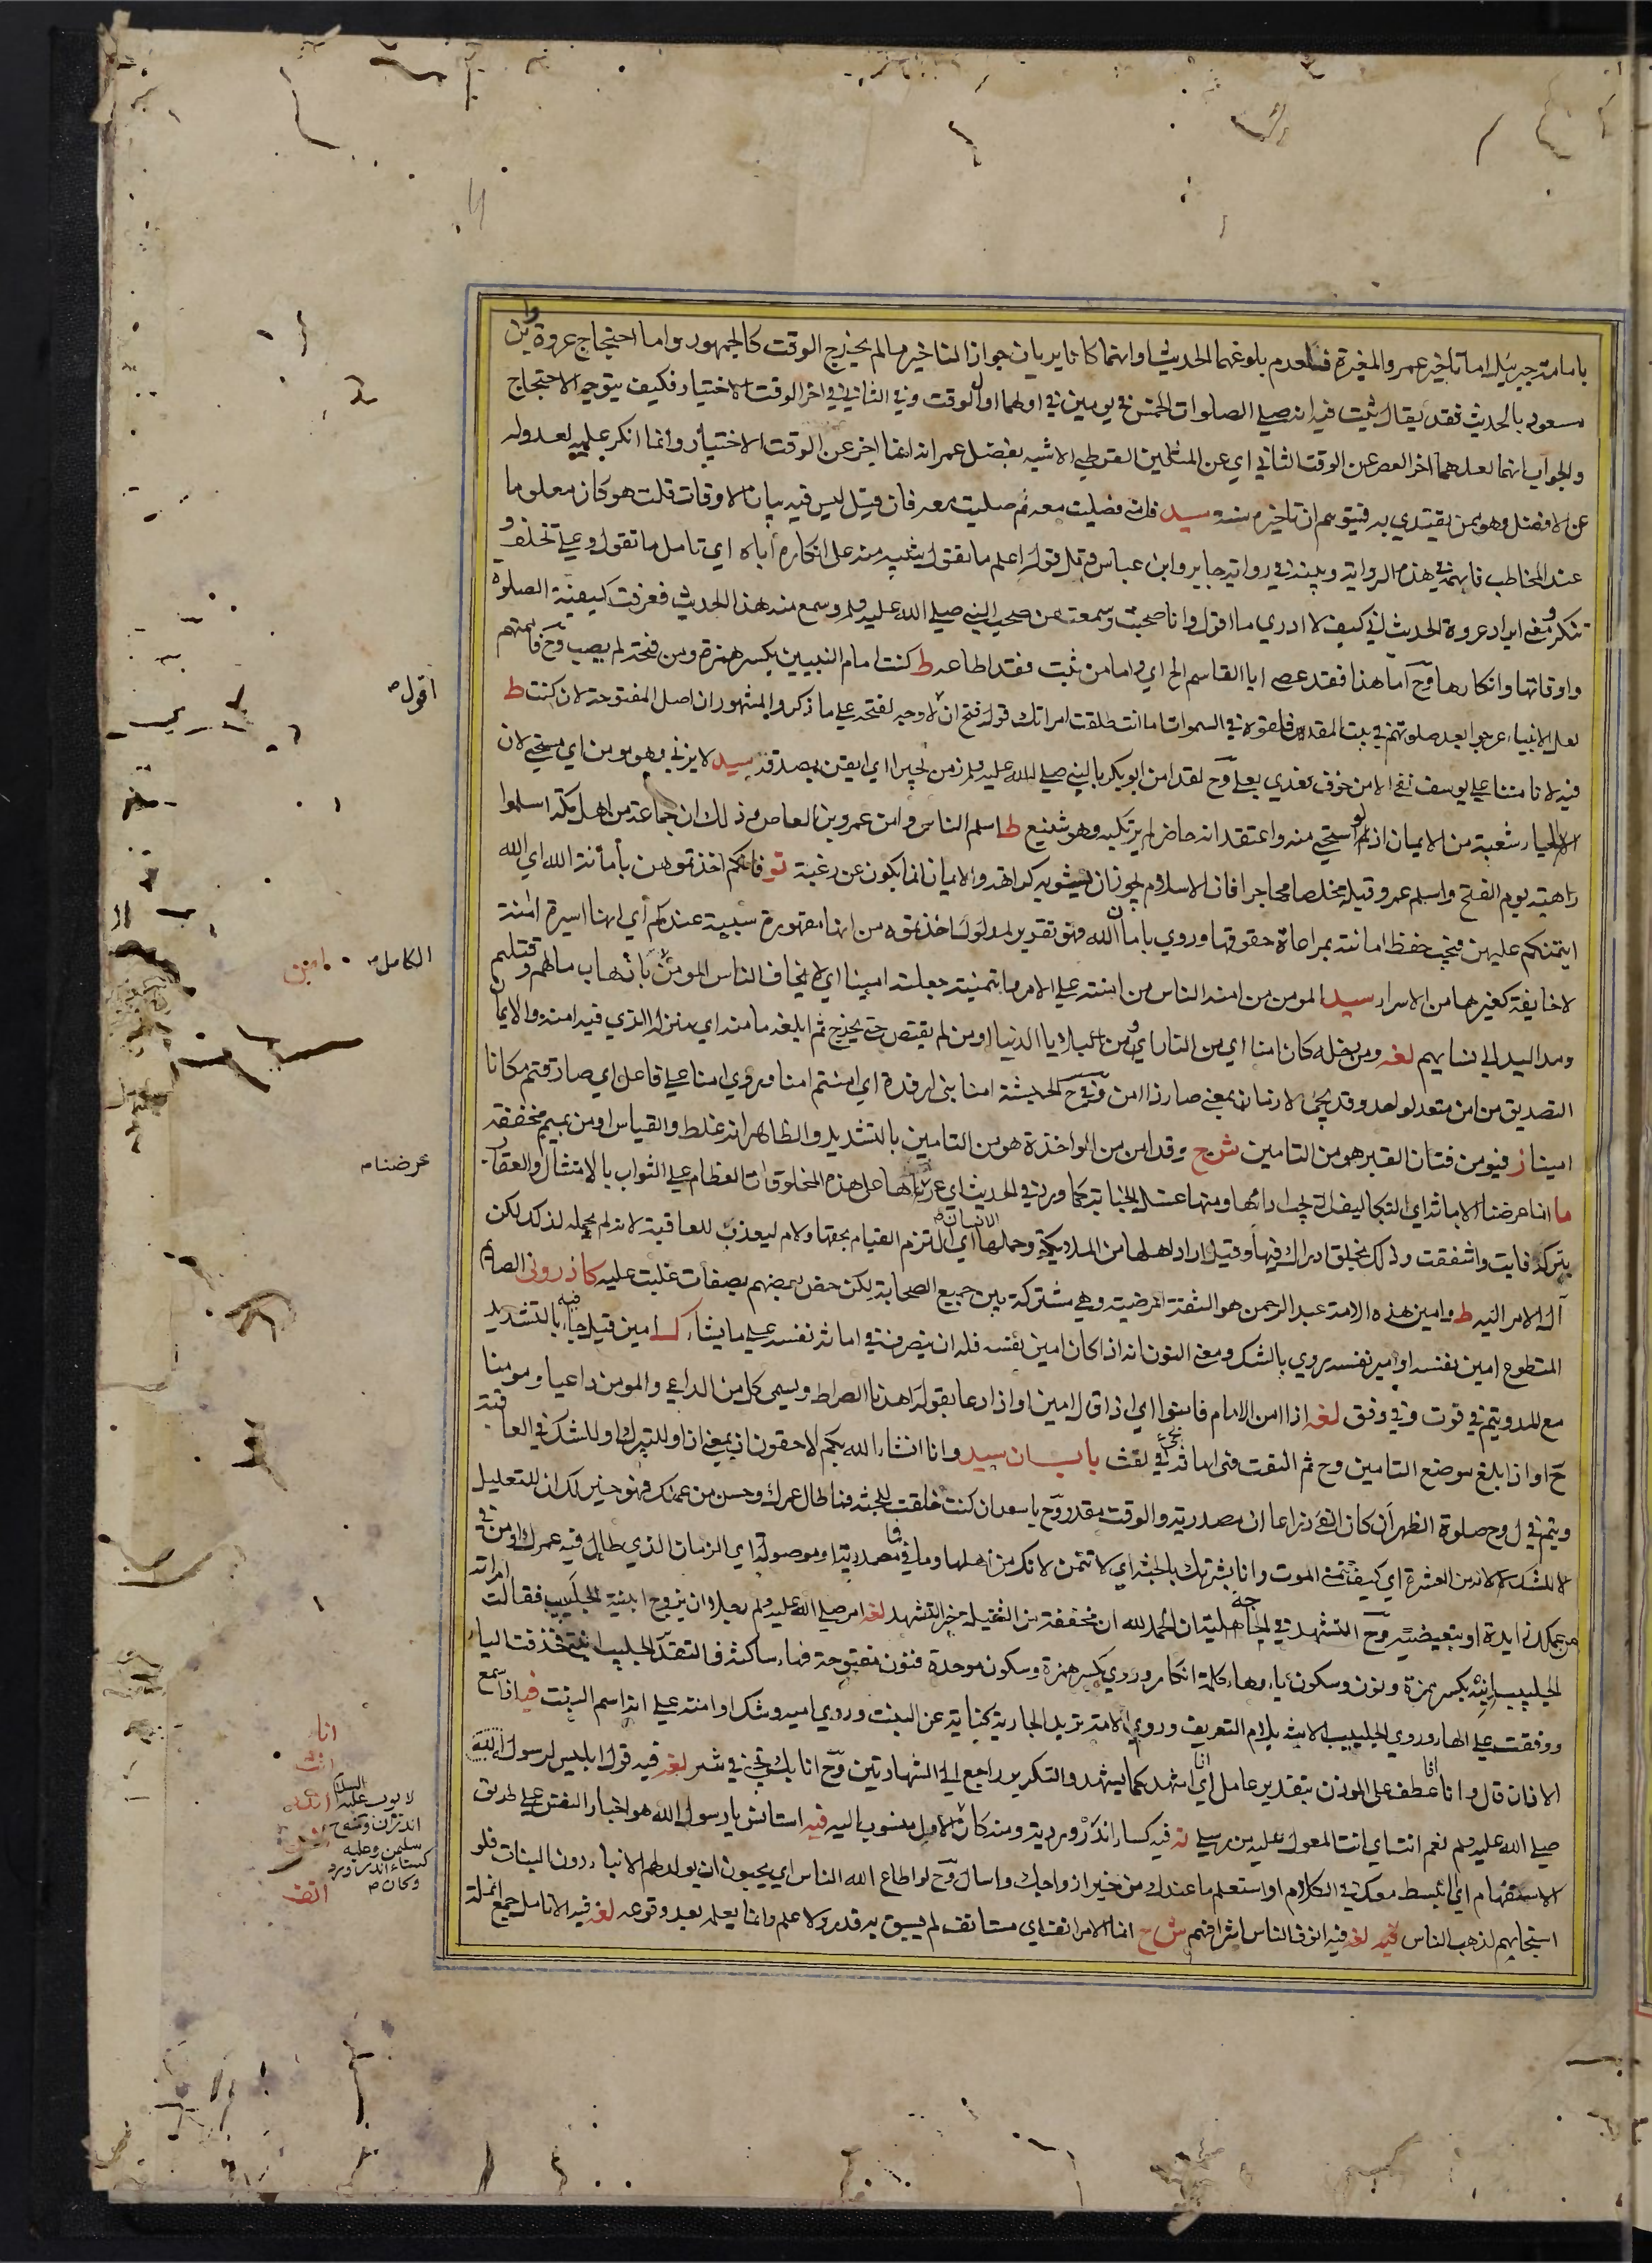 بامامة جبرئيل اما تاخير عمر والمغيرة فلعدم بلوغهما الحديث او انهما كانا يريان جواز التاخير ما لم يخرج الوقت كالجمهور واما احتجاج عروة وابن
مسعود بالحديث فقد يقال ثبت فيه انه صلى الصلوات الخمس في يومين في اولهما اول الوقت وفي الثاني في اخر الوقت الاختيار فكيف يتوجه الاحتجاج
والجواب انهما لعلهما اخرا العصر عن الوقت الثاني اي عن المثلين القرطبي الاشبه بفضل عمر انه انما اخر عن الوقت الاختيار وانما انكر عليه لعدوله
عن الافضل وهو ممن يقتدي به فيتوهم ان تاخيره سنة سيد قلت فصليت معه ثم صليت معه فان قيل ليس فيه بيان الاوقات قلت هو كان معلوما
عند المخاطب فابهمه في هذه الرواية وبينه في رواية جابر وابن عباس قوله اعلم ما تقول تنبيه منه على انكاره اياه اي تامل ما تقول وعلى م تحلف
وتنكر ومعنى ايراد عروة الحديث اني كيف لا ادري ما اقول وانا صحبت وسمعت ممن صحب النبي صلى الله عليه وسلم وسمع منه هذا الحديث فعرفت كيفية الصلوة
واوقاتها وانكارها وح اما هذا فقد عصى ابا القاسم الخ اي واما من ثبت فقد اطاعه ط كنت امام النبيين بكسر همزة ومن فتحه لم يصب وح فامتهم
لعل الانبياء عرجوا بعد صلوتهم في بيت المقدس فلقوه في السموات اما انت طلقت امراتك قوله فتح ان لا وجه لفتحه على ما ذكروا المشهور ان اصل المفتوحة لان كنت ط
فيه لا تامنا على يوسف نفي الامن خوف تعدي بعلى وح لقد امن ابو بكر بالنبي صلى الله عليه وسلم زمن بحيرا اي ايقن بصدقه سيد لا يزني وهو مومن اي مستحي لان
الحياء شعبة من الايمان اذ لو استحيى منه واعتقد انه حاضر لم يرتكبه وهو شنيع ط اسلم الناس وامن عمرو بن العاص وذلك ان جماعة من اهل مكة اسلموا
راهبة يوم الفتح واسلم عمرو قبله مخلصا مهاجرا فان الاسلام يجوز ان يشوبه كراهة والايمان انما يكون عن رغبة تو فانكم اخذتموهن بامانة الله اي الله
ايتمنكم عليهن فيجب حفظ امانته بمراعاة حقوقها وروي بامان الله فهو تقدير لمدلول اخذتموه من انها مقهورة سبيه عندكم اي انها اسيرة امنة
لا خايفة كغيرها من الاسراء سيد المومن من امنه الناس من امنته على الامر وايتمنته جعلته امينا اي لا يخاف الناس المومن باذهاب مالهم وقتلهم
ومد اليد الى نسايهم لغه ومن دخله كان امنا اي من النار اي ومن البلايا الدنيا او من لم يقتص حتى يخرج ثم ابلغه مامنه اي منزله الذي فيه امنه والايمان
التصديق من امن متعد لواحد وقد يجئ لازما بمعنى صار ذا امن وفي ح الحبشة امنا بني ارفدة اي امنتم امنا وروي امنا على فاعل اي صادفتم مكانا
امينا ز فيومن فتان القبر هو من التامين ش ح وقد امن من المواخذة هو من التامين بالتشديد والظاهر انه غلط والقياس اومن بميم مخففة
ما انا عرضنا الامانة اي التكاليف التي يجب ادائها ومنها غسل الجنابة كما ورد في الحديث اي عرضناها على هذه المخلوقات العظام على الثواب بالامتثال والعقاب
بتركه فابت واشفقت وذلك بخلق ادراك فيها وقيل اراد اهلها من الملئكة وحملها الانسان اي التزم القيام بحقها ولام ليعذب للعاقبة لانه لم يحمله لذلك لكن
آل الامر اليه ط وامين هذه الامة عبد الرحمن هو الثقة المرضية وهي مشتركة بين جميع الصحابة لكن خص بعضهم بصفات غلبت عليه كازروني الصائم
المتطوع امين نفسه او امير نفسه روي بالشك ومعنى النون انه اذا كان امين نفسه فله ان يتصرف في امانة نفسه على ما يشاء ك امين قيل جاء فيه بالتشديد
مع المد ويتم في قوت وفي وفق لغه اذا امن الامام فامنوا اي اذا قال امين او اذا دعا بقوله اهدنا الصراط ويسمى كل من الداعي والمومن داعيا ومومنا
ح او اذا بلغ موضع التامين وح ثم التفت فهي امانة يجئ في لفت باب ان سيد وانا ان شاء الله بكم لاحقون ان بمعنى اذا او للتبرك او للشك في العاقبة
ويتم في ل وح صلوة الظهر ان كان الفئ ذراعا ان مصدرية والوقت مقدر وح يا سعد ان كنت خلقت للجنة فما طال عمرك وحسن من عملك فهو خير لك ان للتعليل
لا للشك لانه من العشرة اي كيف تتمنى الموت وانا بشرتك بالجنة اي لا تتمن لانك من اهلها وما في فما مصدرية او موصولة اي الزمان الذي طال فيه عمرك ومن في
من عملك زايدة او تبعيضية وح التشهد في الجاهلية ان الحمد لله ان مخففة من الثقيلة خبر التشهد لغه امر صلى الله عليه وسلم رجلا ان يزوج ابنته الجليبيب فقالت امراته
الجليبيب انيه بكسر همزة ونون وسكون ياء وهاء كلمة انكار وروي بكسر همزة وسكون موحدة فنون مفتوحة فهاء ساكنة فالتقدير الجليبيب ابنتي فحذفت الياء
ووقفت على الهاء وروي الجليبيب الابنة بلام التعريف وروي الامة تريد الجارية كناية عن البنت وروي امية وشك او امنة على انه اسم البنت فيه اذا سمع
الاذان قال وانا انا عطف على الموذن بتقدير عامل اي انا اشهد كما يشهد والتكرير راجع الى الشهادتين وح انا بك يجئ في شر لغه فيه قول ابليس لرسول الله
صلى الله عليه وسلم نعم انت اي انت المعول عليه من مرسلي نه فيه كساء اندرورديه ومنه كان الاول منسوب اليه فيه استانس يا رسول الله هو اخبار النفس على طريق
الاستفهام اي انبسط معك في الكلام او استعلم ما عندك من خير ازواجك واسال وح لو اطاع الله الناس اي يحبون ان يولد لهم الابناء دون البنات فلو
استجابهم لذهب الناس فيه لغه فيه انوف الناس اشرافهم ش ح انما الامر انف اي مستانف لم يسبق به قدر ولا علم وانما يعلمه بعد وقوعه لغه فيه الانامل جمع انملة
اقول ص
الكامل ص
امن
عرضنا ص
انا
انت
انف